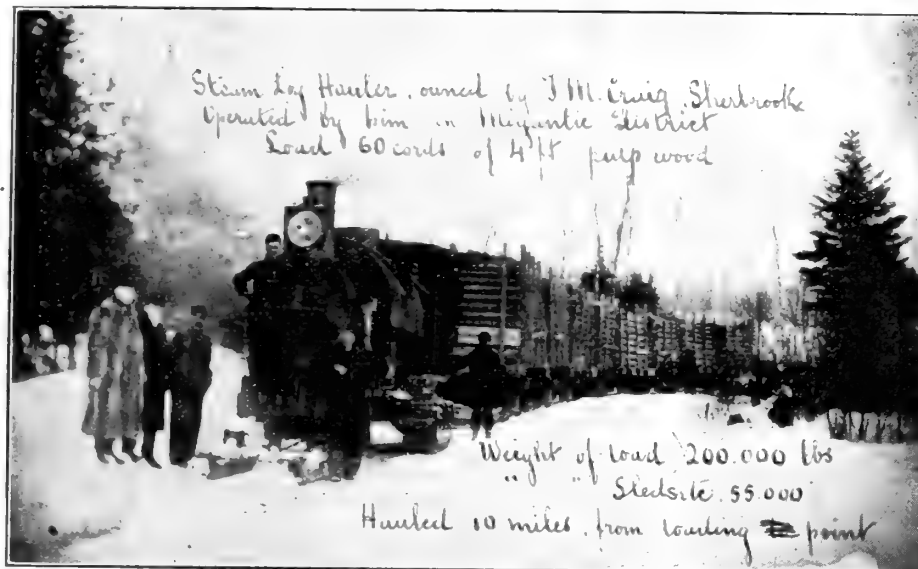 Steam Log Hauler. owned by J M. Craig. Sherbrooke
Operated by him in Megantic District
Load 60 cords of 4 ft pulp wood
Weight of load 200.000 lbs
" " Sleds etc. 55.000
Hauled 10 miles. from loading point